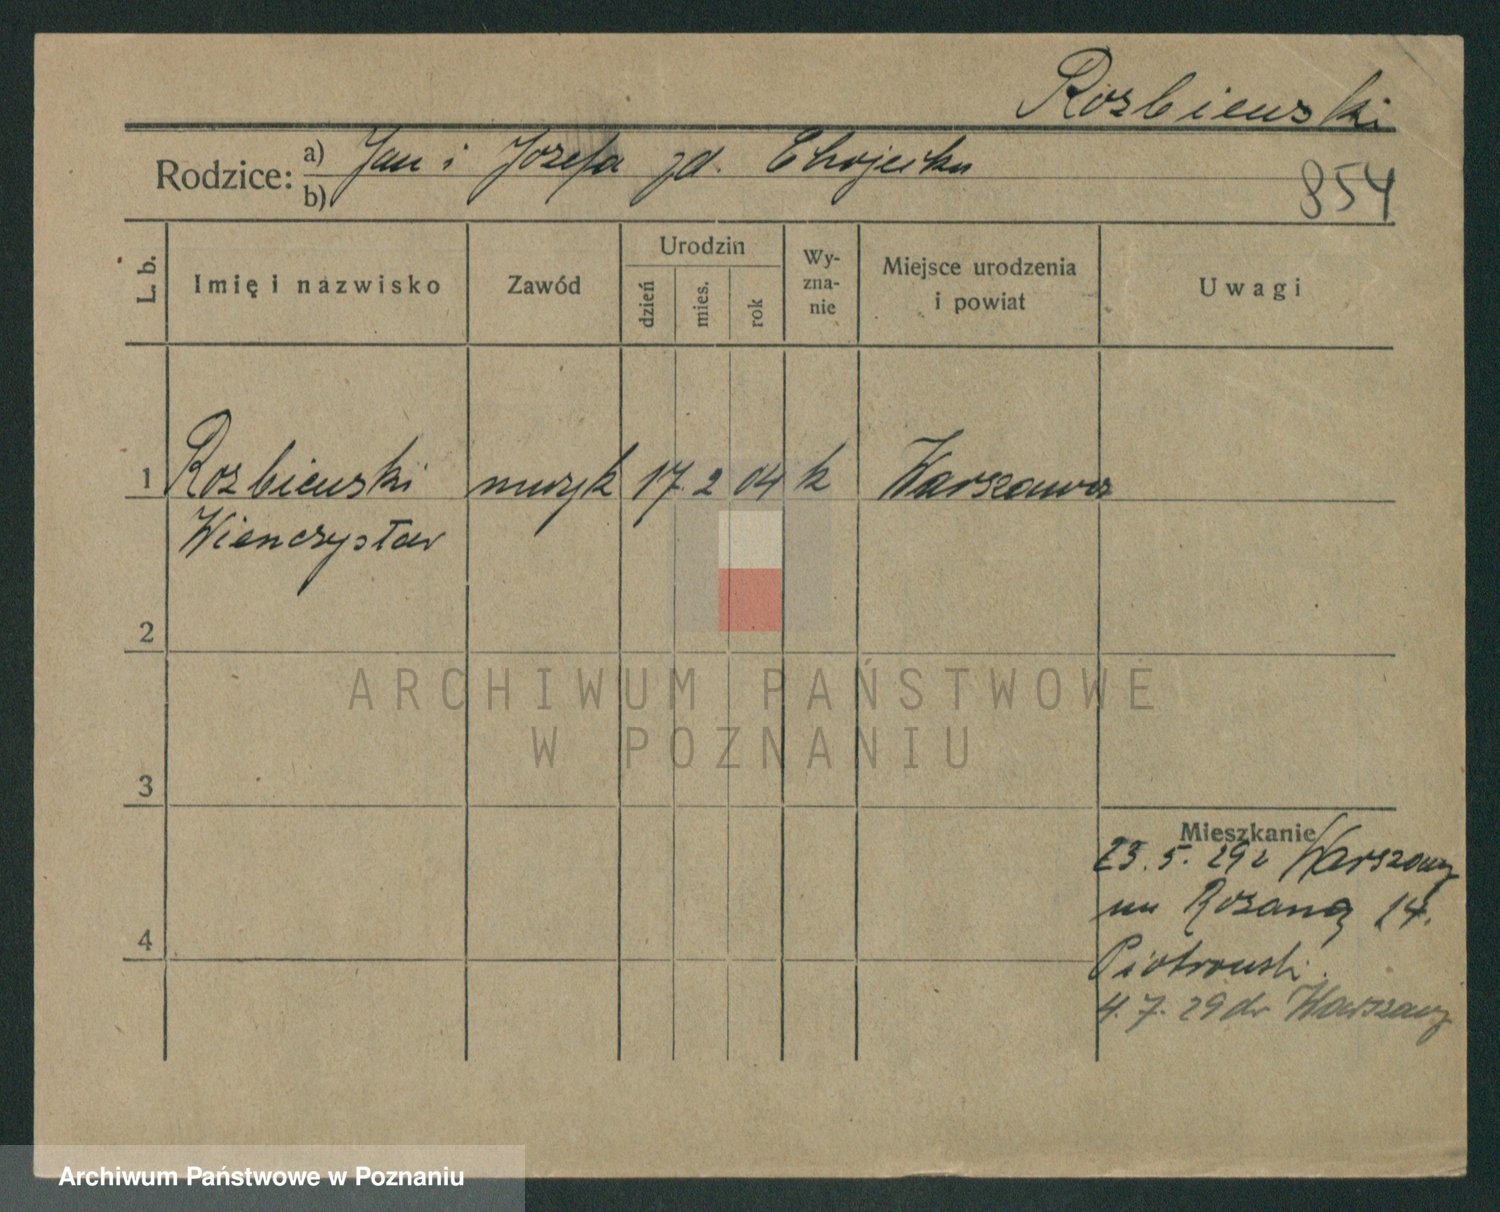 Rozbiewski
Rodzice: a) Jan i Józefa zd.
b)
854
L. b.
Imię i nazwisko
Zawód
Urodzin
dzień
mies.
rok
Wy-
zna-
nie
Miejsce urodzenia
i powiat
Uwagi
1 Rozbiewski muzyk 17. 2 04 k Warszawa
Wienczysław
2
3
4
Mieszkanie
23. 5. 29 z Warszawy
Rozana 14.
Piotrowski.
4. 7. 29 do Warszawy
ARCHIWUM PAŃSTWOWE
W POZNANIU
Archiwum Państwowe w Poznaniu